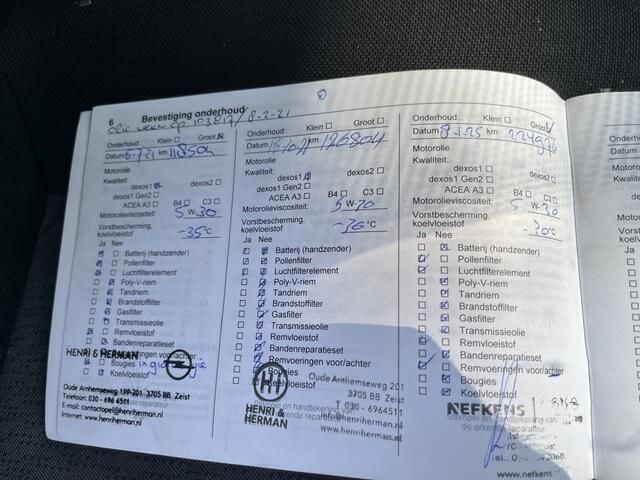 6 Bevestiging onderhoud
8-2-21
Onderhoud: Klein ☐ Groot ☒
Datum 5-7-21 km 118504
Motorolie
Kwaliteit:
dexos1 ☒ dexos2 ☐
dexos1 Gen2 ☐
ACEA A3 ☐ B4 ☐ C3 ☐
Motorolieviscositeit: 5 W-30
Vorstbescherming,
koelvloeistof -35 °C
Ja Nee
Batterij (handzender)
Pollenfilter
Luchtfilterelement
Poly-V-riem
Tandriem
Brandstoffilter
Gasfilter
Transmissieolie
Remvloeistof
Bandenreparatieset
Remvoeringen voor/achter
Bougies
Koelvloeistof
HENRI & HERMAN
Oude Arnhemseweg 199-201 3705 BB Zeist
Telefoon: 030 - 696 4511
E-mail: contactopel@henriherman.nl
Internet: www.henriherman.nl
Onderhoud: Klein ☐ Groot ☐
Datum km 126804
Motorolie
Kwaliteit:
dexos1 ☒ dexos2 ☐
dexos1 Gen2 ☐
ACEA A3 ☐ B4 ☐ C3 ☐
Motorolieviscositeit: 5 W-
Vorstbescherming,
koelvloeistof -36 °C
Ja Nee
Batterij (handzender)
Pollenfilter
Luchtfilterelement
Poly-V-riem
Tandriem
Brandstoffilter
Gasfilter
Transmissieolie
Remvloeistof
Bandenreparatieset
Remvoeringen voor/achter
Bougies
Koelvloeistof
Oude Arnhemseweg 201
3705 BB Zeist
T 030 - 6964511
info@henriherman.nl
www.henriherman.nl
HENRI &
HERMAN
en handtekening van
de erkende reparateur
Onderhoud: Klein ☐ Groot ☑
Datum 8-1-25 km
Motorolie
Kwaliteit:
dexos1 ☐ dexos2 ☐
dexos1 Gen2 ☐
ACEA A3 ☐ B4 ☐ C3 ☐
Motorolieviscositeit: 5 W-30
Vorstbescherming,
koelvloeistof -30 °C
Ja Nee
Batterij (handzender)
Pollenfilter
Luchtfilterelement
Poly-V-riem
Tandriem
Brandstoffilter
Gasfilter
Transmissieolie
Remvloeistof
Bandenreparatieset
Remvoeringen voor/achter
Bougies
Koelvloeistof
NEFKENS
Stempel en handtekening van
de erkende reparateur
www.nefkens